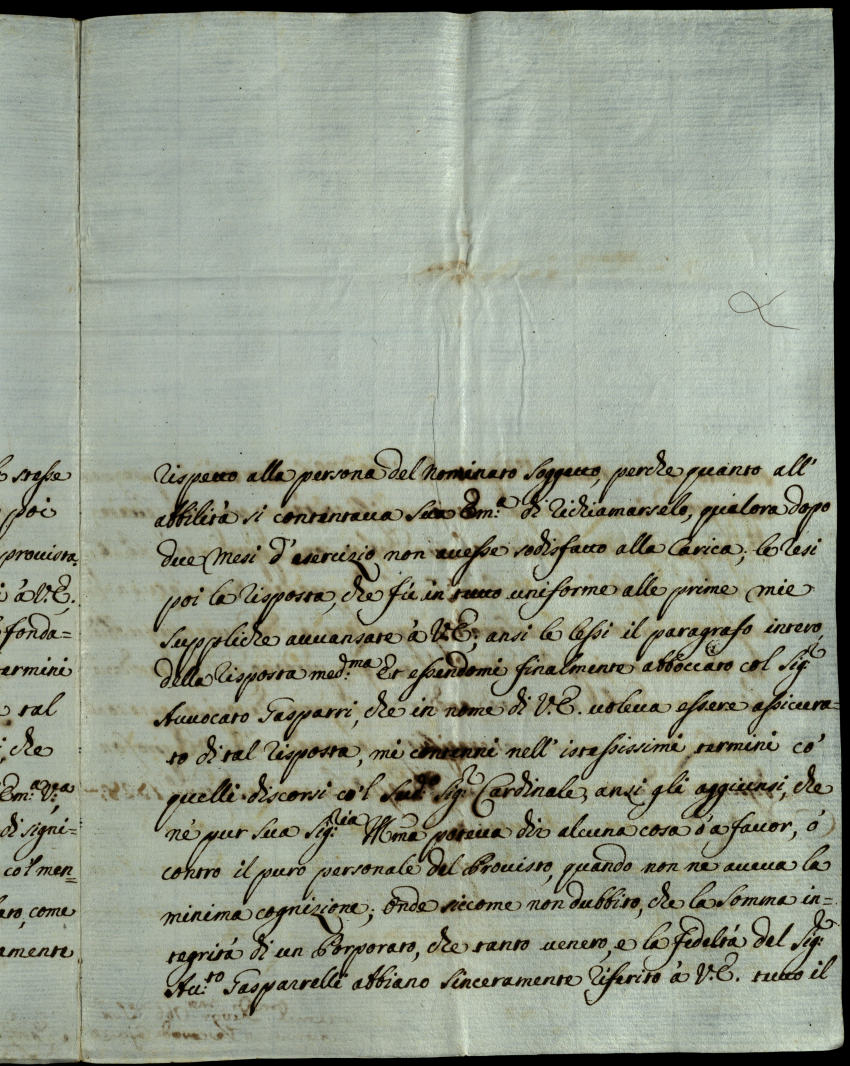 stesse
poi
provista
à V.E.
fonda=
termini
tal
, che
Em.ª V.ª,
di signi=
co'l men=
ato, come
amente
rispetto alla persona del nominato soggetto, perche quanto all'
abbilità si contentava Sua Em.ª di richiamarselo, qualora dopo
due Mesi d'esercizio non avesse sodisfatto alla Carica; le resi
poi la risposta, che fù in tutto uniforme alle prime mie
suppliche avvansate à V.E. ansi le lessi il paragrafo intero
della risposta med.ma Et essendomi finalmente abboccato col Sig.r
Avvocato Gasparri, che in nome di V.E. voleva essere assicura=
to di tal risposta, mi contenni nell'istessissimi termini co'
quelli discorsi co'l Sud.o Sig.r Cardinale, ansi gli aggiunsi, che
nè pur sua Sig.ria Ill.ma poteva dir alcuna cosa ò a favor, ò
contro il puro personale del Provisto, quando non ne aveva la
minima cognizione; Onde siccome non dubbito, che la somma in=
tegrità di un Porporato, che tanto venero, e la fedeltà del Sig.r
Av.to Gasparrelli abbiano sinceramente riferito à V.E. tutto il